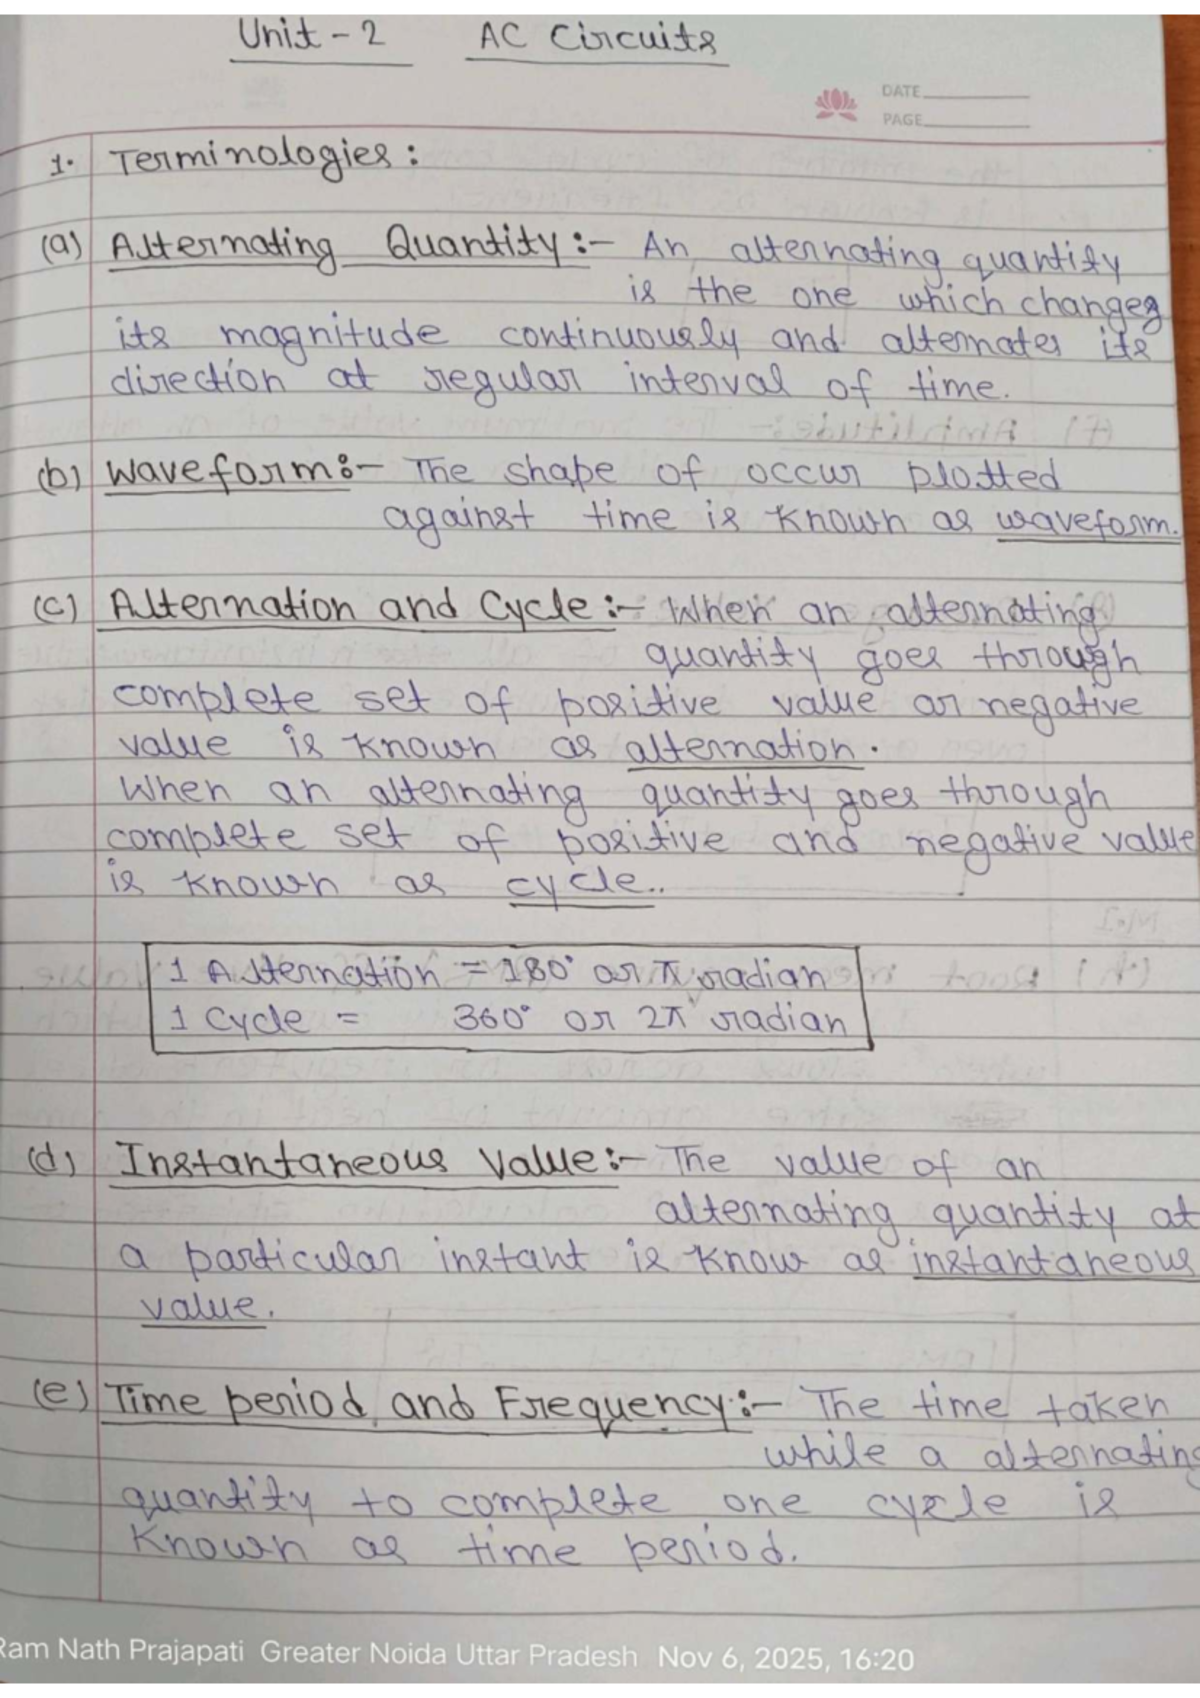 Unit - 2 AC Circuits
DATE
PAGE
1. Terminologies :
(a) Alternating Quantity :- An alternating quantity
is the one which changes
its magnitude continuously and alternates its
direction at regular interval of time.
(b) Waveform :- The shape of occur plotted
against time is known as waveform.
(c) Alternation and Cycle :- When an alternating
quantity goes through
complete set of positive value or negative
value is known as alternation.
When an alternating quantity goes through
complete set of positive and negative value
is known as cycle..
1 Alternation = 180° or π radian
1 Cycle = 360° or 2π radian
(d) Instantaneous Value :- The value of an
alternating quantity at
a particular instant is know as instantaneous
value.
(e) Time period and Frequency :- The time taken
while a alternating
quantity to complete one cycle is
known as time period.
Ram Nath Prajapati Greater Noida Uttar Pradesh Nov 6, 2025, 16:20